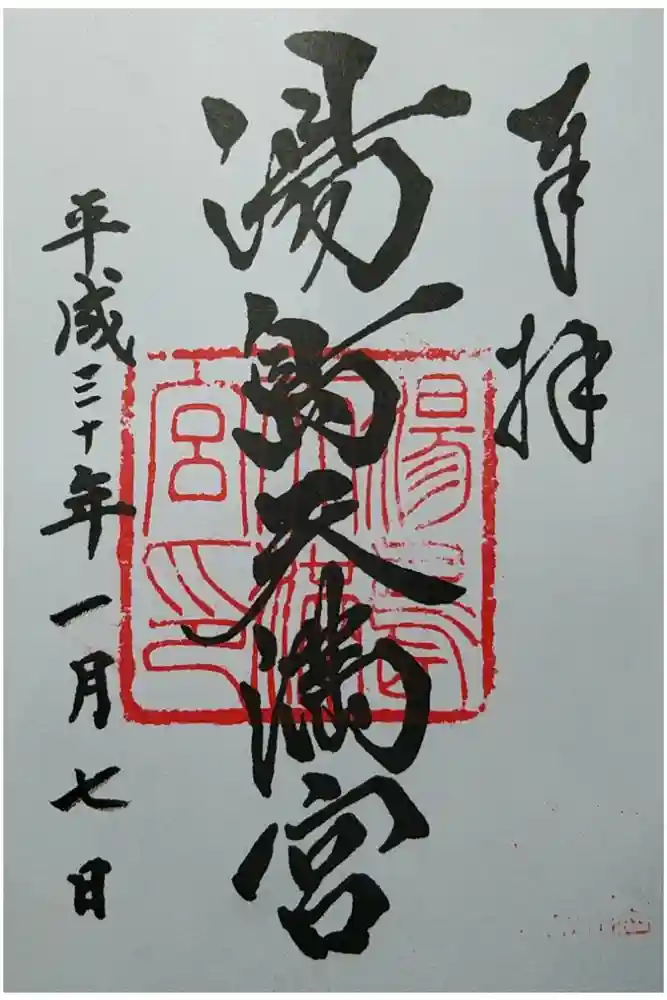 奉拝
湯島天満宮
平成三十年一月七日
湯島
天満
宮印